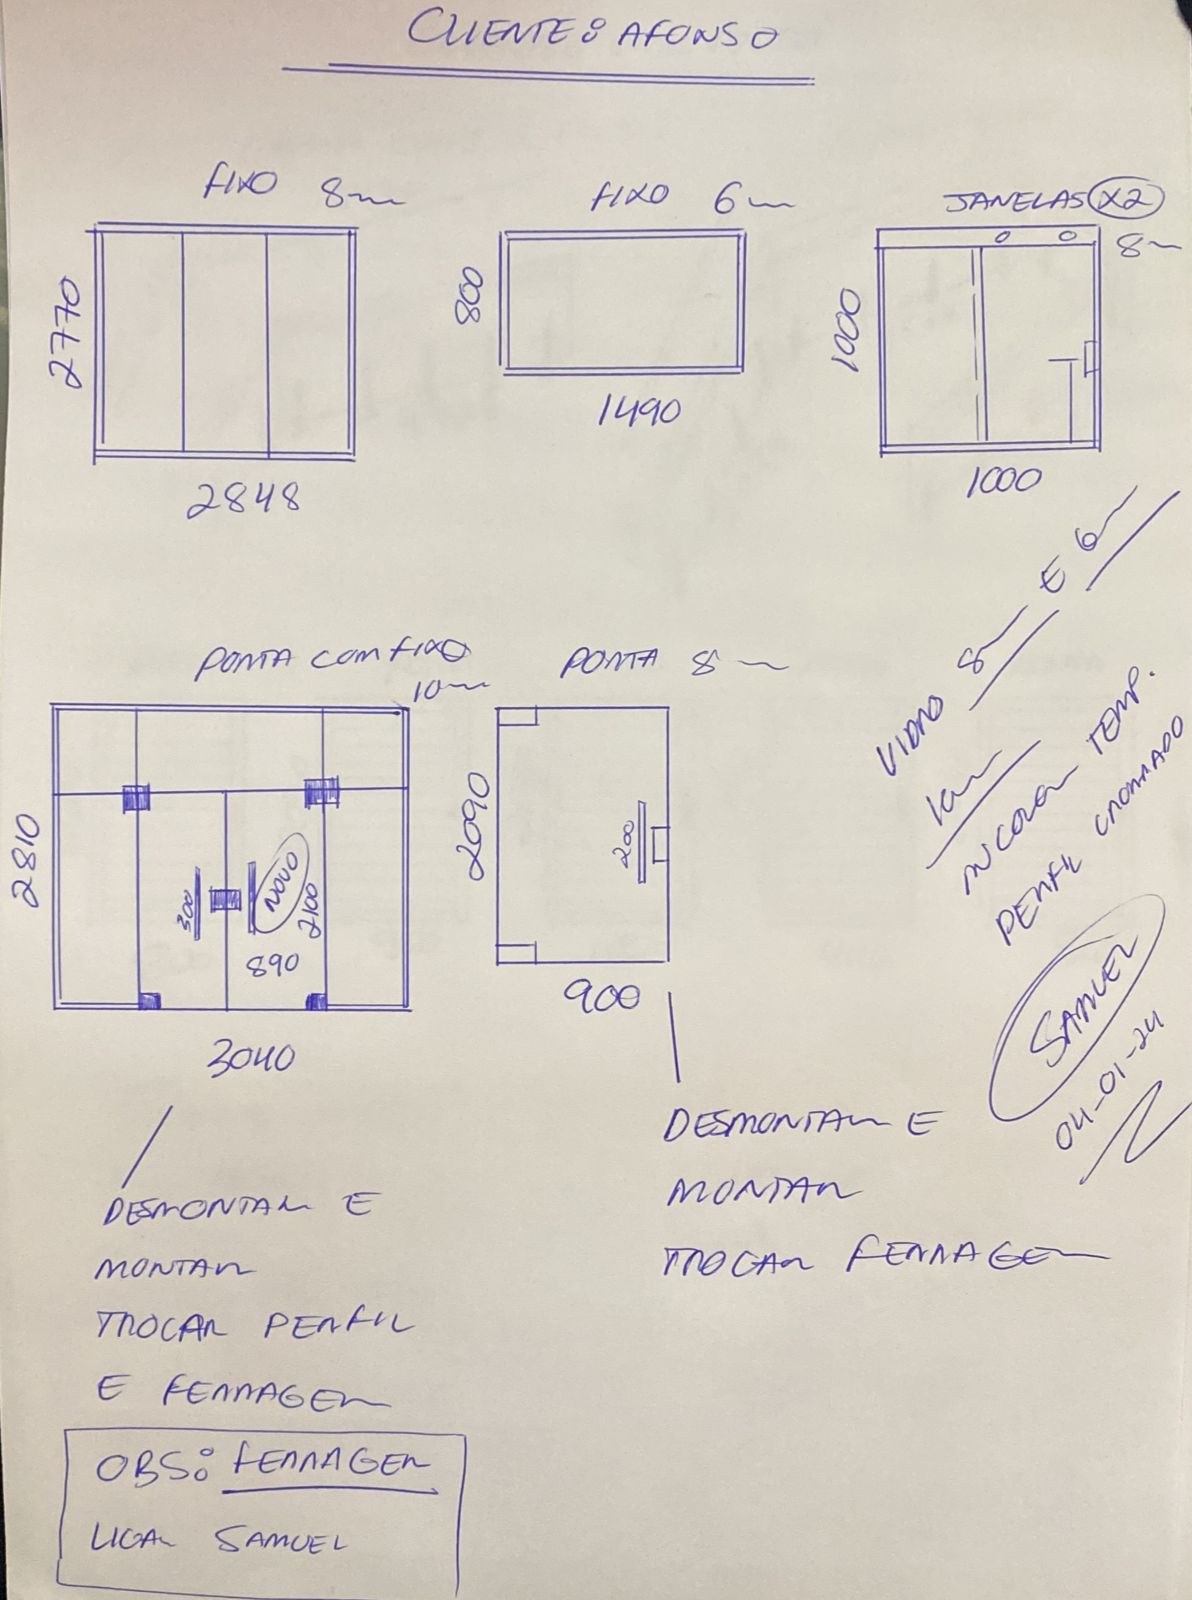 CLIENTE: AFONSO
FIXO 8mm
2770
2848
FIXO 6mm
800
1490
JANELAS X2
8mm
1000
1000
PORTA COM FIXO
10mm
2810
300
NOVO
2100
890
3040
PORTA 8mm
2090
200
900
VIDRO 8mm E 6mm
INCOLOR TEMP.
PERFIL CROMADO
SAMUEL
04-01-24
DESMONTAR E
MONTAR
TROCAR PERFIL
E FERRAGEM
DESMONTAR E
MONTAR
TROCAR FERRAGEM
OBS: FERRAGEM
LIGAR SAMUEL